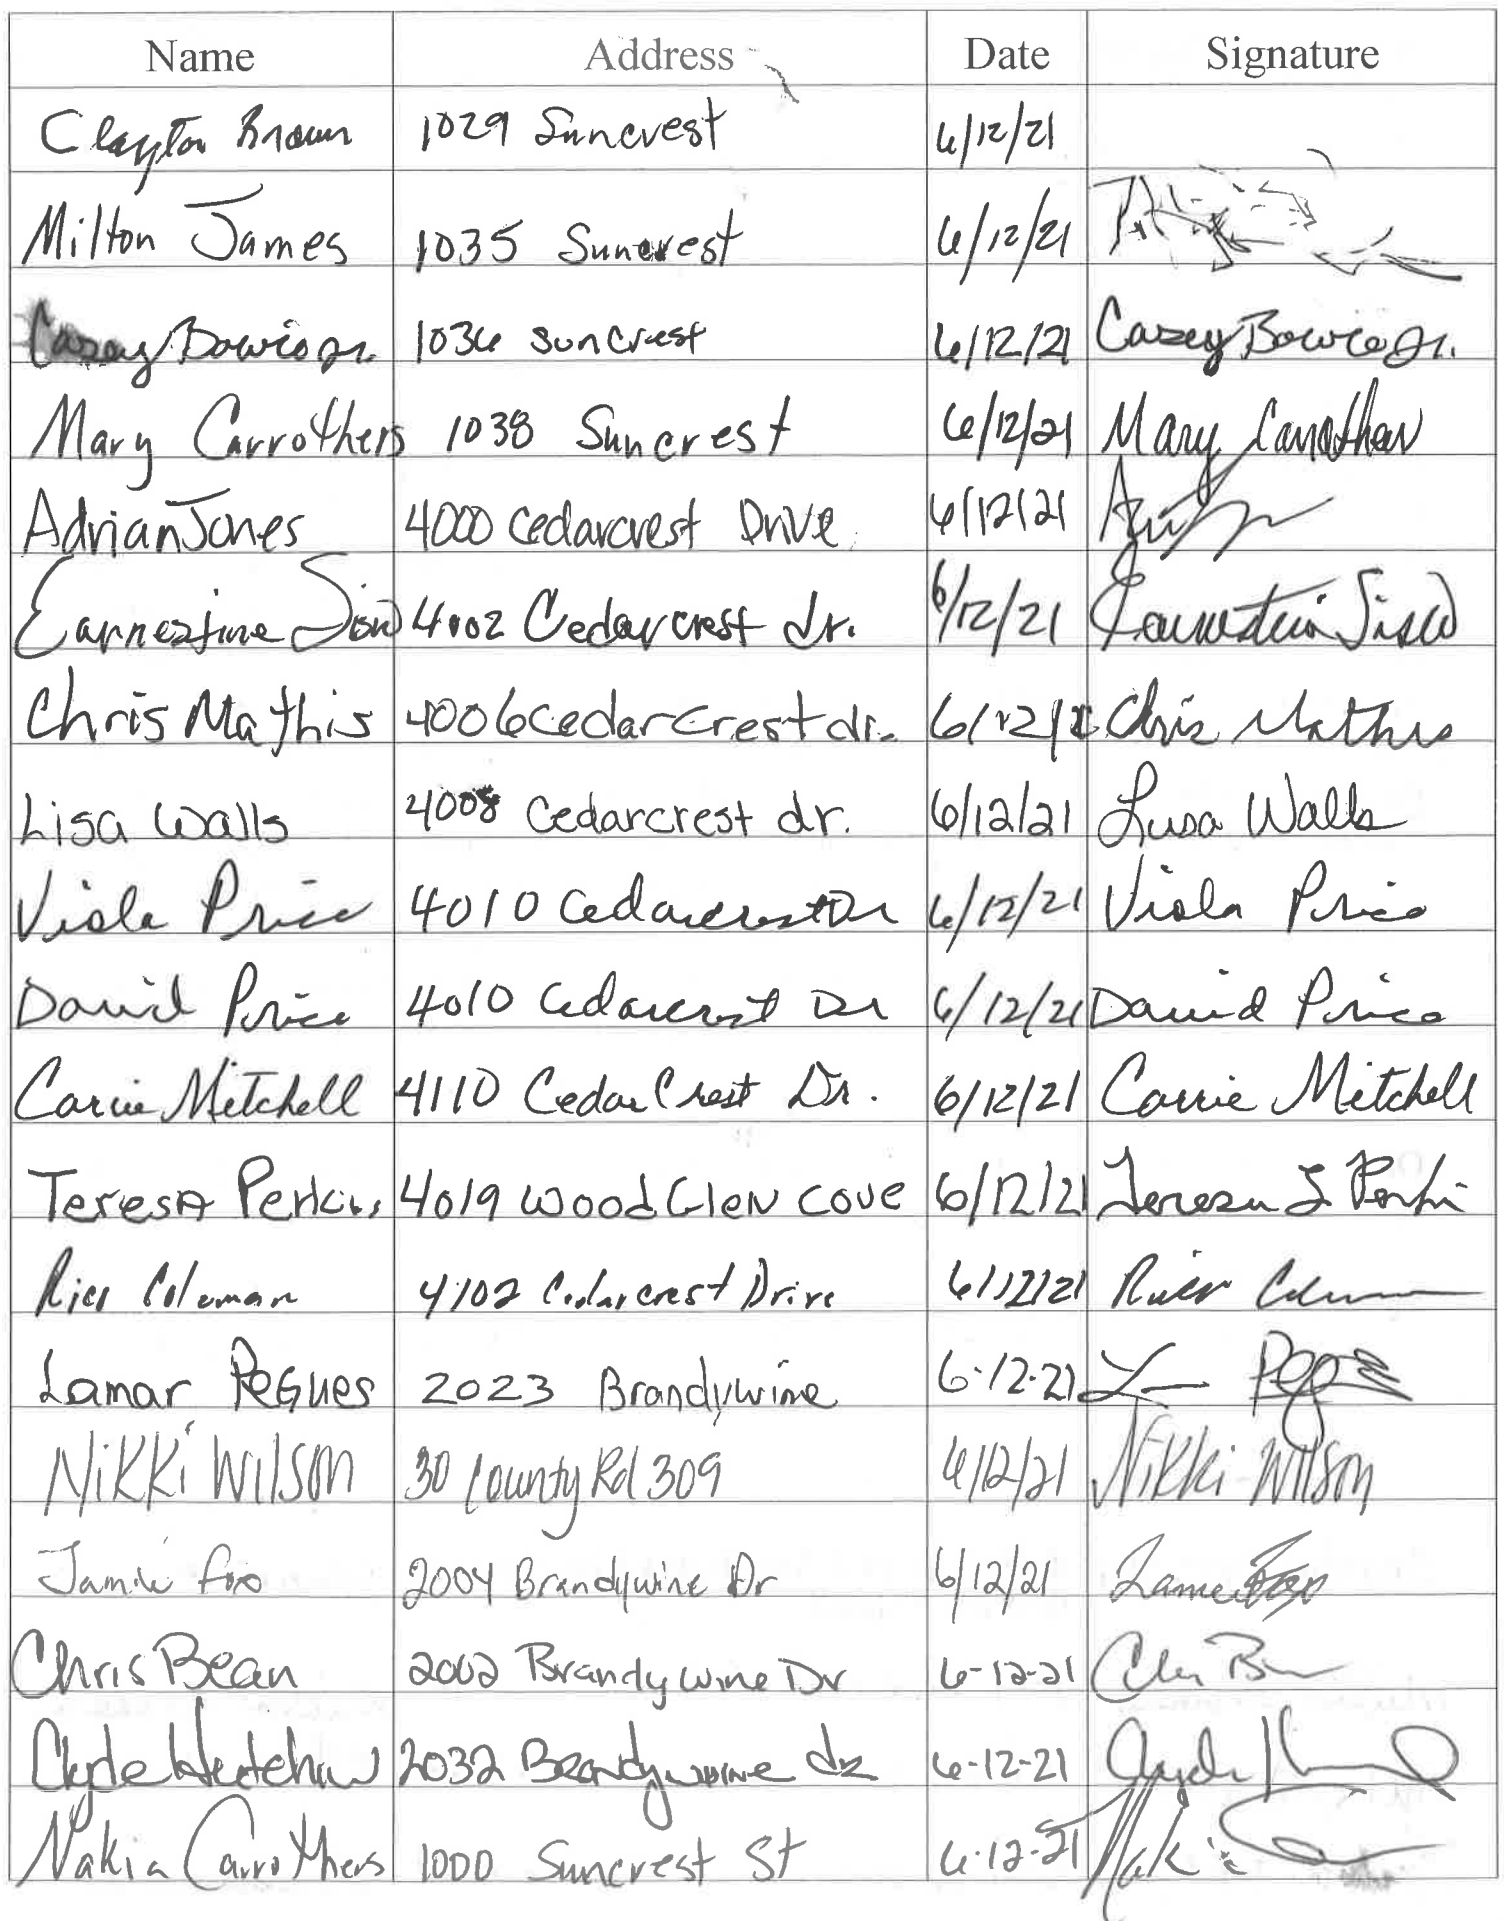 Name Address Date Signature
Clayton Brown 1029 Suncrest 6/12/21
Milton James 1035 Suncrest 6/12/21
Casey Bowie Jr. 1036 suncrest 6/12/21 Casey Bowie Jr.
Mary Carrothers 1038 Suncrest 6/12/21 Mary Carrothers
Adrian Jones 4000 Cedarcrest Drive 6/12/21
Earnestine 4002 Cedarcrest dr. 6/12/21
Chris Mathis 4006 Cedarcrest dr. 6/12/ Chris Mathis
Lisa Walls 4008 Cedarcrest dr. 6/12/21 Lisa Walls
Viola Price 4010 Cedarcrest Dr 6/12/21 Viola Price
David Price 4010 Cedarcrest Dr 6/12/21 David Price
Carrie Mitchell 4110 Cedar Crest Dr. 6/12/21 Carrie Mitchell
Teresa Perkins 4019 WoodGlen Cove 6/12/21 Teresa L Perkin
Rico Coleman 4102 Cedarcrest Drive 6/12/21 Rico
Lamar Pegues 2023 Brandywine 6-12-21
Nikki Wilson 30 County Rd 309 6/12/21 Nikki Wilson
Jamie Fox 2004 Brandywine Dr 6/12/21 Jamie Fox
Chris Bean 2002 Brandywine Dr 6-12-21
Clyde 2032 Brandywine dr 6-12-21 Clyde
Nakia Carrothers 1000 Suncrest St 6-12-21